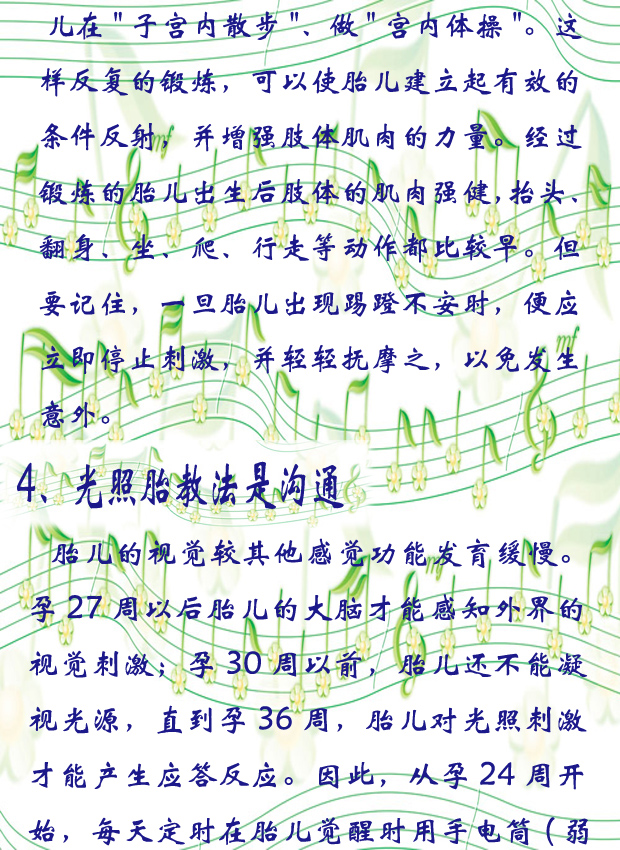 儿在"子宫内散步"、做"宫内体操"。这
样反复的锻炼，可以使胎儿建立起有效的
条件反射，并增强肢体肌肉的力量。经过
锻炼的胎儿出生后肢体的肌肉强健,抬头、
翻身、坐、爬、行走等动作都比较早。但
要记住，一旦胎儿出现踢蹬不安时，便应
立即停止刺激，并轻轻抚摩之，以免发生
意外。
4、光照胎教法是沟通
胎儿的视觉较其他感觉功能发育缓慢。
孕27周以后胎儿的大脑才能感知外界的
视觉刺激；孕30周以前，胎儿还不能凝
视光源，直到孕36周，胎儿对光照刺激
才能产生应答反应。因此，从孕24周开
始，每天定时在胎儿觉醒时用手电筒（弱
mf
mf
mf